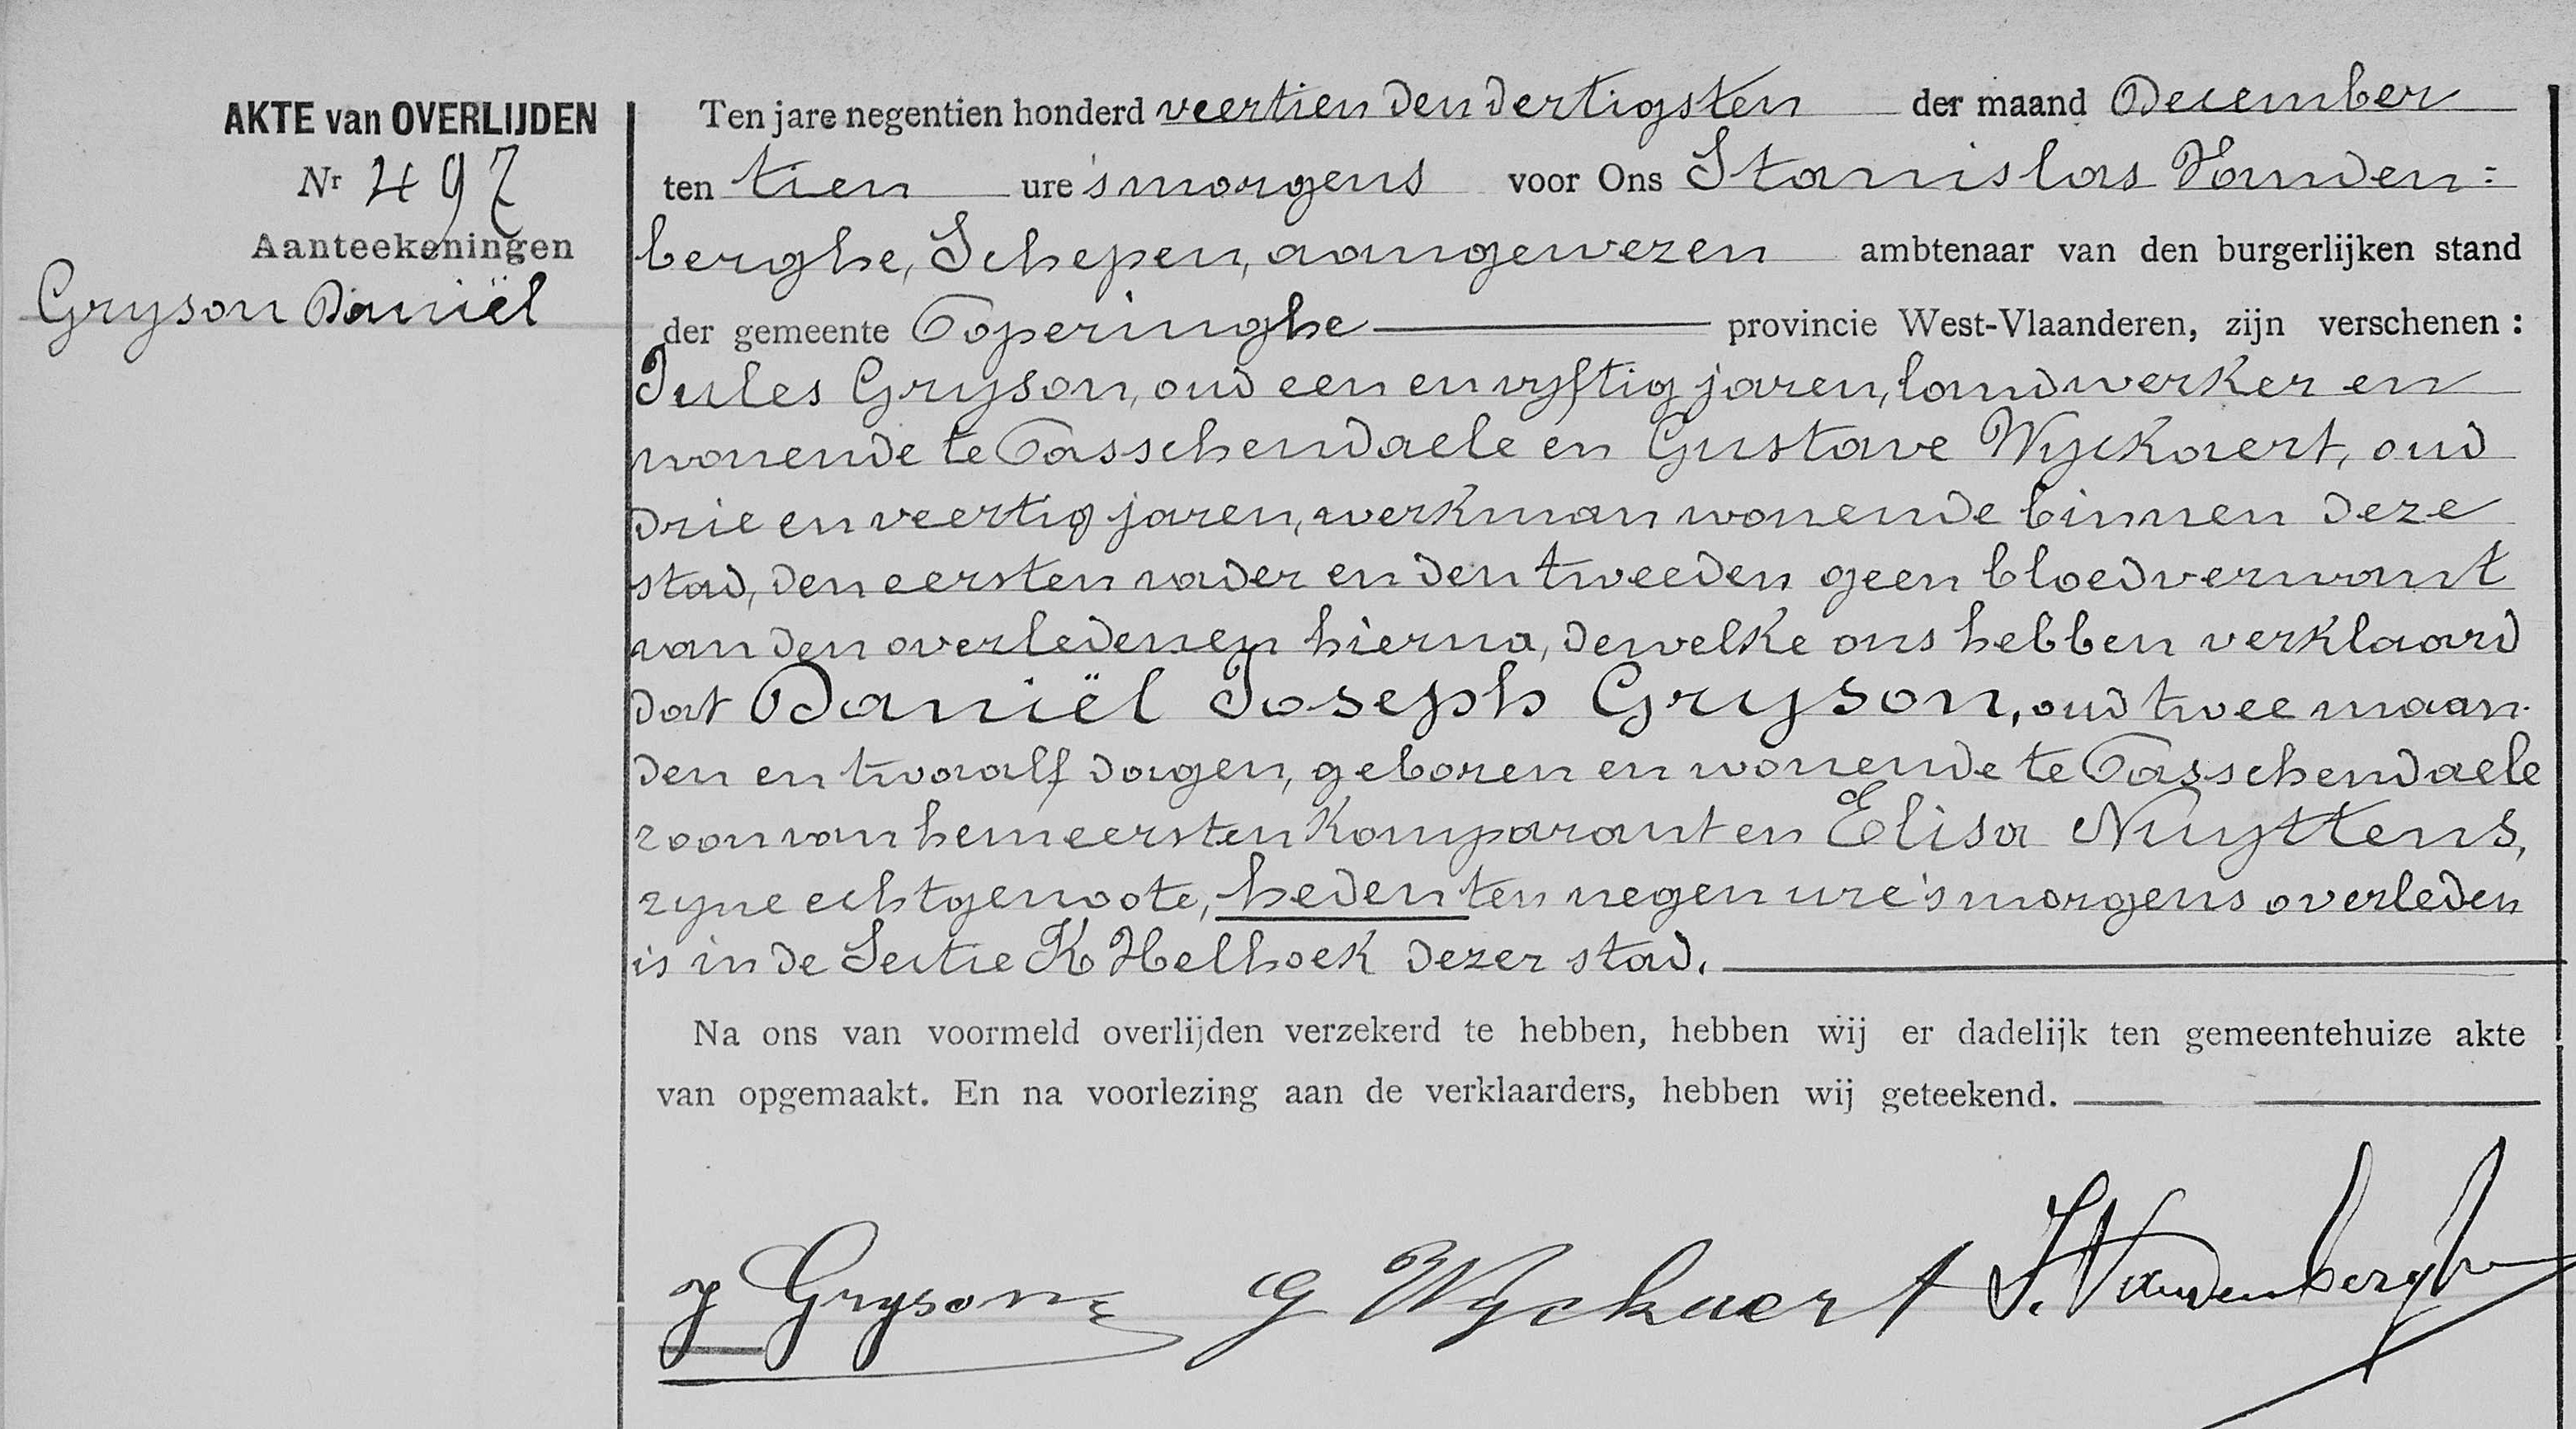 AKTE van OVERLIJDEN
Nr 497
Aanteekeningen
Gryson Daniël
Ten jare negentien honderd veertien den dertigsten der maand December
ten tien ure 's morgens voor Ons Stanislas Vanden=
berghe, Schepen, aangewezen ambtenaar van den burgerlijken stand
der gemeente Poperinghe provincie West-Vlaanderen, zijn verschenen :
Jules Gryson, oud een en vyftig jaren, landwerker en
wonende te Passchendaele en Gustave Wyckaert, oud
drie en veertig jaren, werkman wonende binnen deze
stad, den eersten vader en den tweeden geen bloedverwant
van den overledenen hierna, dewelke ons hebben verklaard
dat Daniël Joseph Gryson, oud twee maan-
den en twaalf dagen, geboren en wonende te Passchendaele
zoon van hem eersten komparant en Elisa Nuyttens,
zyne echtgenoote, heden ten negen ure 's morgens overleden
is in de Sectie K Helhoek dezer stad.
Na ons van voormeld overlijden verzekerd te hebben, hebben wij er dadelijk ten gemeentehuize akte
van opgemaakt. En na voorlezing aan de verklaarders, hebben wij geteekend.
J Gryson G Wyckaert S. Vandenberghe